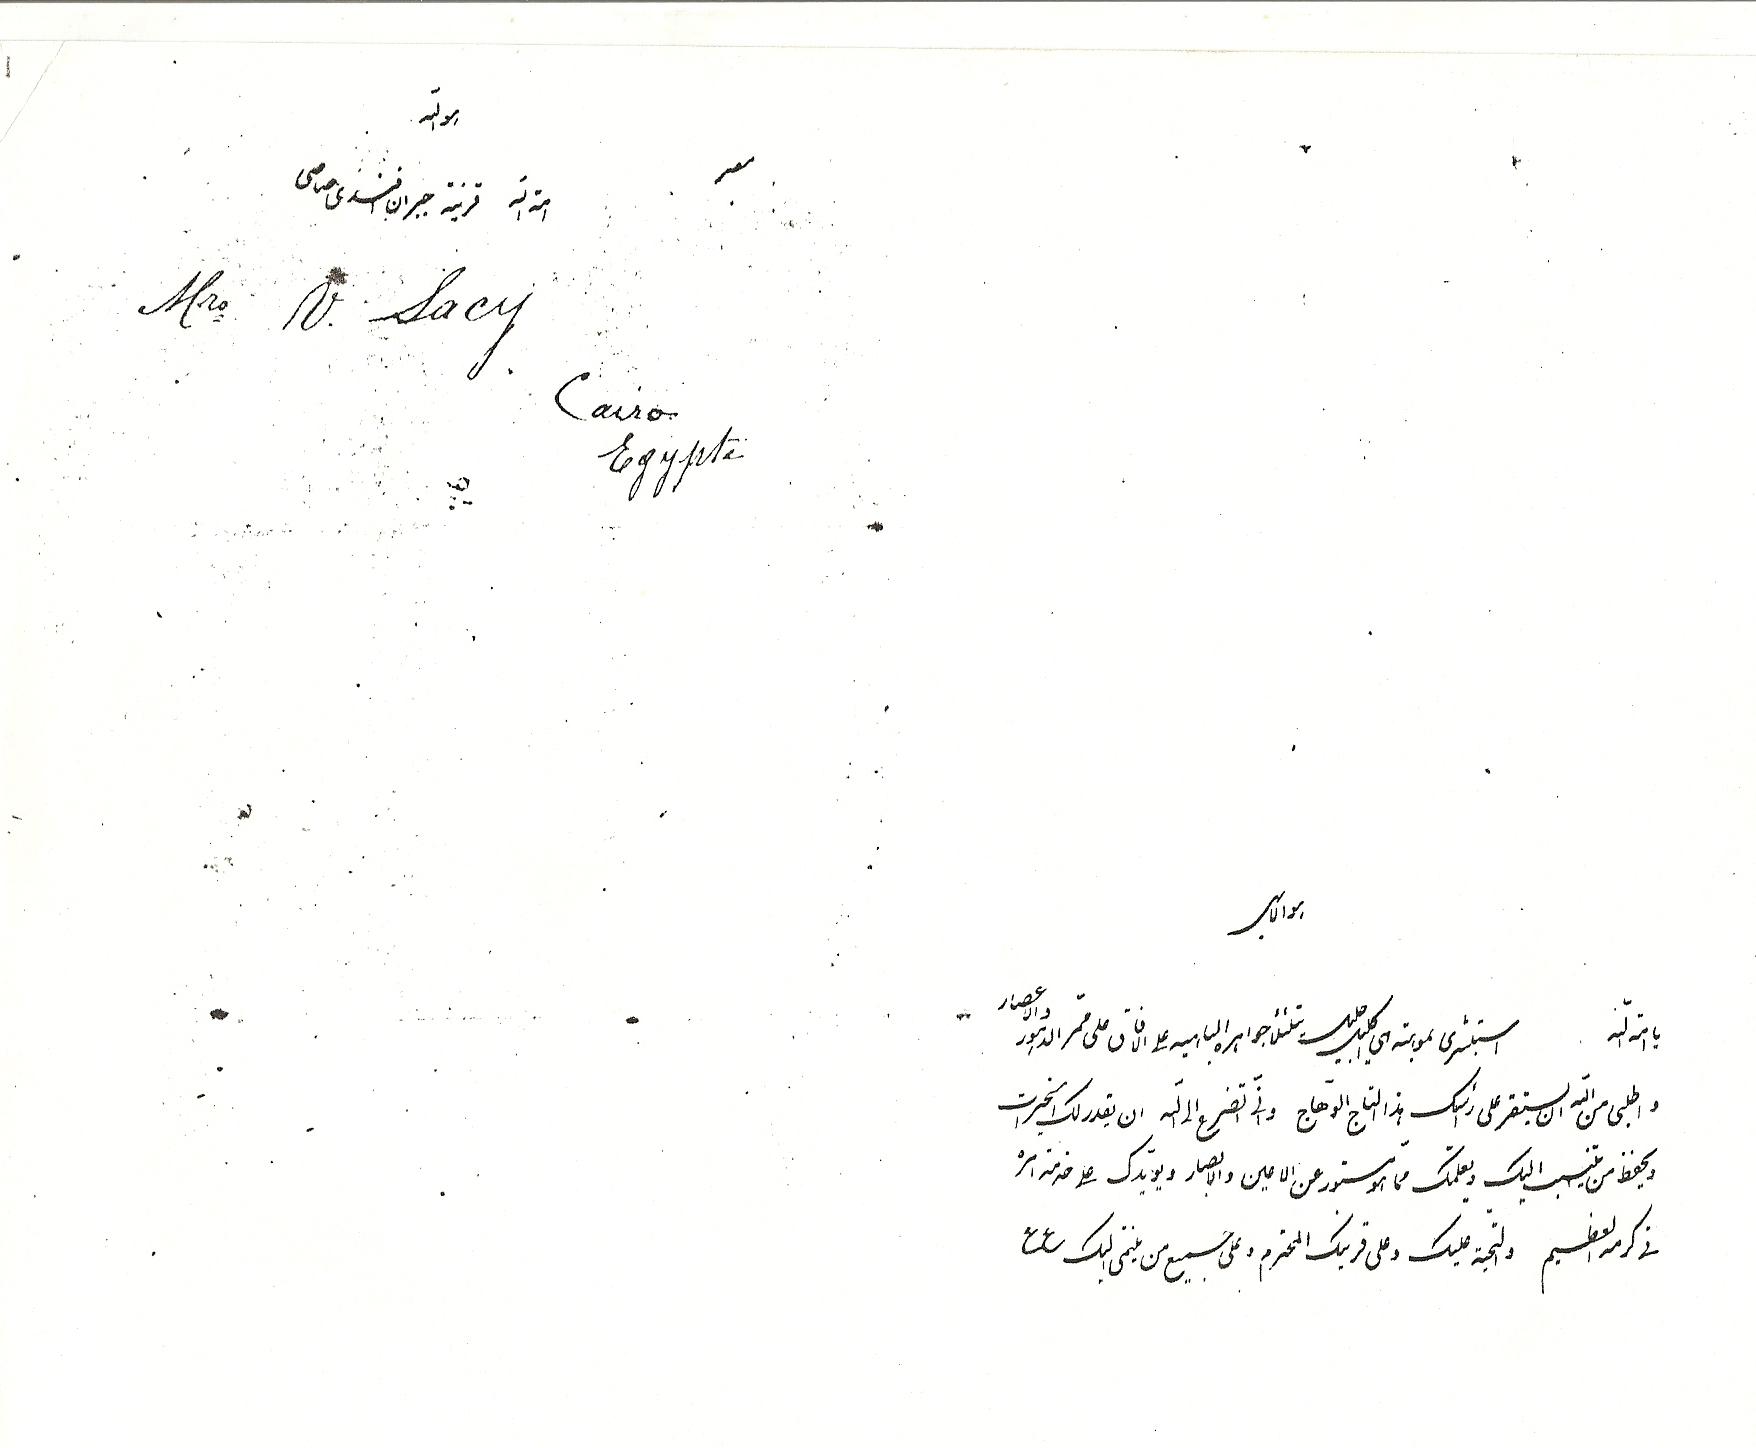 هو الله
مصر
امة الله قرينة جبران افندی صاصی
Mrs V. Sacy
Cairo
Egypte
هو الابهی
يا امة الله استبشری بموهبة هی اکليل جليل يتلئلأ جواهره الباهرة علی الافاق علی ممر الدهور والاعصار
و اطلبی من الله ان يستقر علی رأسک هذا التاج الوهاج وانی اتضرع الی الله ان يقدر لک الخيرات
ويحفظ من ينتسب اليک ويعلمک مما هو مستور عن الاعين والابصار ويؤيدک علی خدمة امره
فی کرمه العظيم والتحية عليک وعلی قرينک المحترم وعلی جميع من ينتمی اليک ع ع